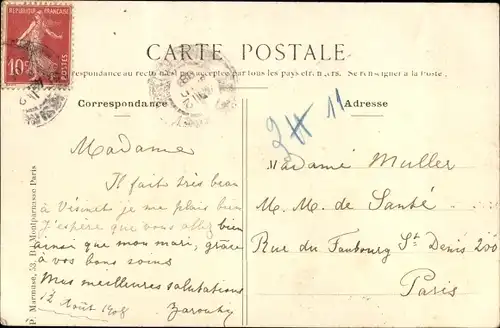 REPUBLIQUE FRANÇAISE
10c
POSTES
CARTE POSTALE
La correspondance au recto n'est pas acceptée par tous les pays étrangers. Se renseigner à la Poste.
Correspondance
Adresse
2 H 11
Madame
Il fait très beau
à Vésinet je me plais bien
J'espère que vous allez bien
ainsi que mon mari, grâce
à vos bons soins
Mes meilleures salutations
12 Août 1908
Madame Muller
M. M. de Santé
Rue du Faubourg St Denis 200
Paris
P. Marmuse, 53, Bd Montparnasse Paris